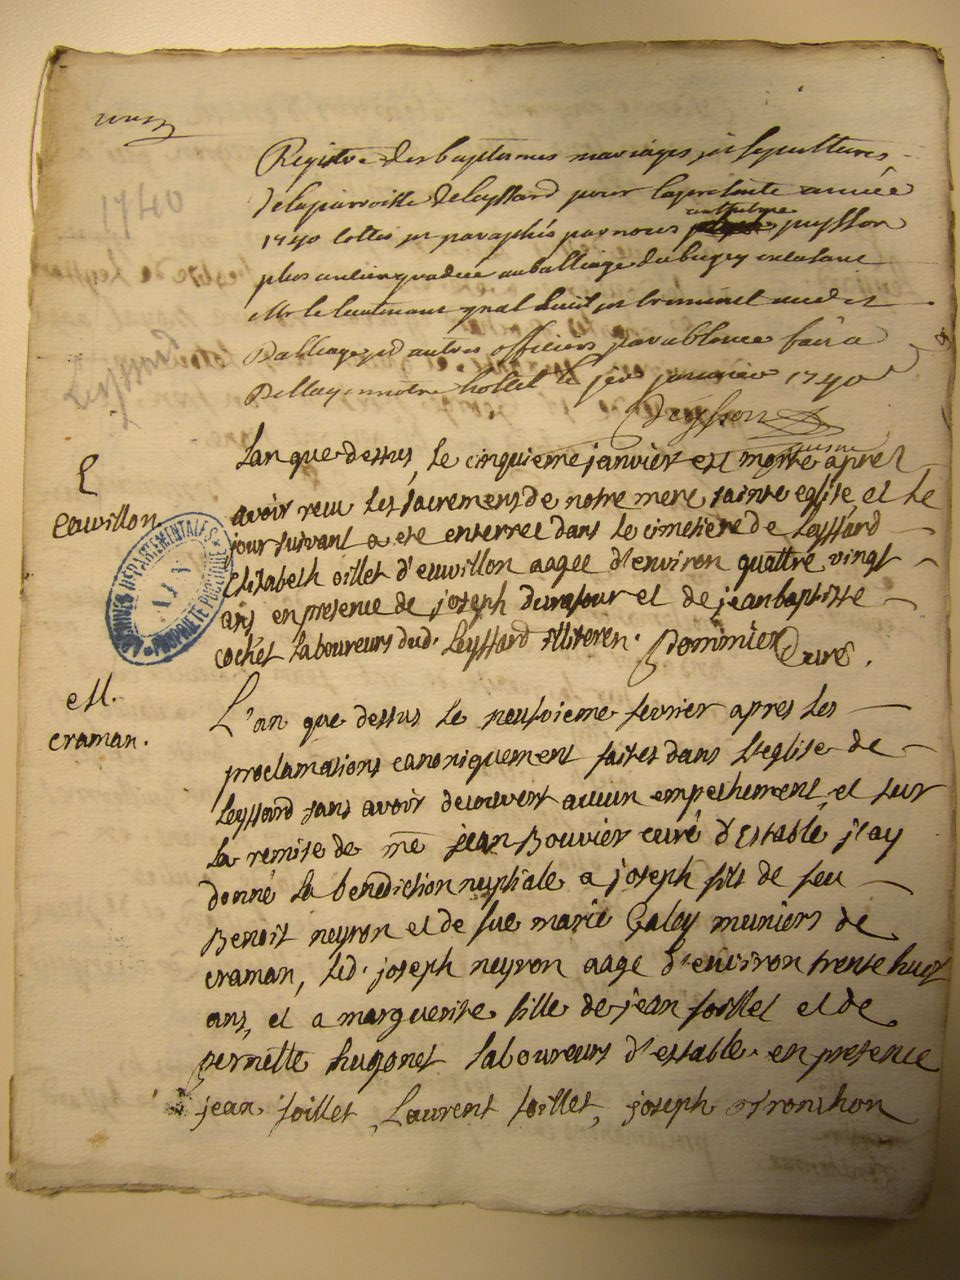 Registre des baptemes mariages et sepultures
de la parroisse de Leyssard pour la presente année
1740 cottés et paraphés par nous anthelme peysson
plus ancien gradué au balliage du bugey en labsance
Mr le lieutenant gnal civil et criminel aud
Balliage et autres officiers par absence fait a
Belley en notre hostel le per janvier 1740
Peysson
E
euvillon
L'an que dessus, le cinquieme janvier est morte apres
avoir reçu les sacremens de notre mere sainte eglise, et le
jour suivant a eté enterrée dans le cimetiere de Leyssard
Elizabeth oillet d'euvillon aagée d'environ quattre vingt
ans en presence de joseph durafour et de jean baptiste
cochet laboureurs dud. Leyssard illiteren. Pommier Curé.
ARCHIVES DEPARTEMENTALES
AIN
PROPRIETE PUBLIQUE
M.
craman.
L'an que dessus le neufvieme fevrier apres les
proclamations canoniquement faites dans l'eglise de
Leyssard sans avoir decouvert aucun empechement, et sur
la remise de me jean Bouvier curé d'Estable j'ay
donné la benediction nuptiale a joseph fils de feu
Benoit neyron et de fue marie Galey muniers de
craman, led. joseph neyron aagé d'environ trente huit
ans, et a marguerite fille de jean foillet et de
pernette hugonet laboureurs d'estable. en presence
jean foillet, Laurent foillet, joseph Tronchon